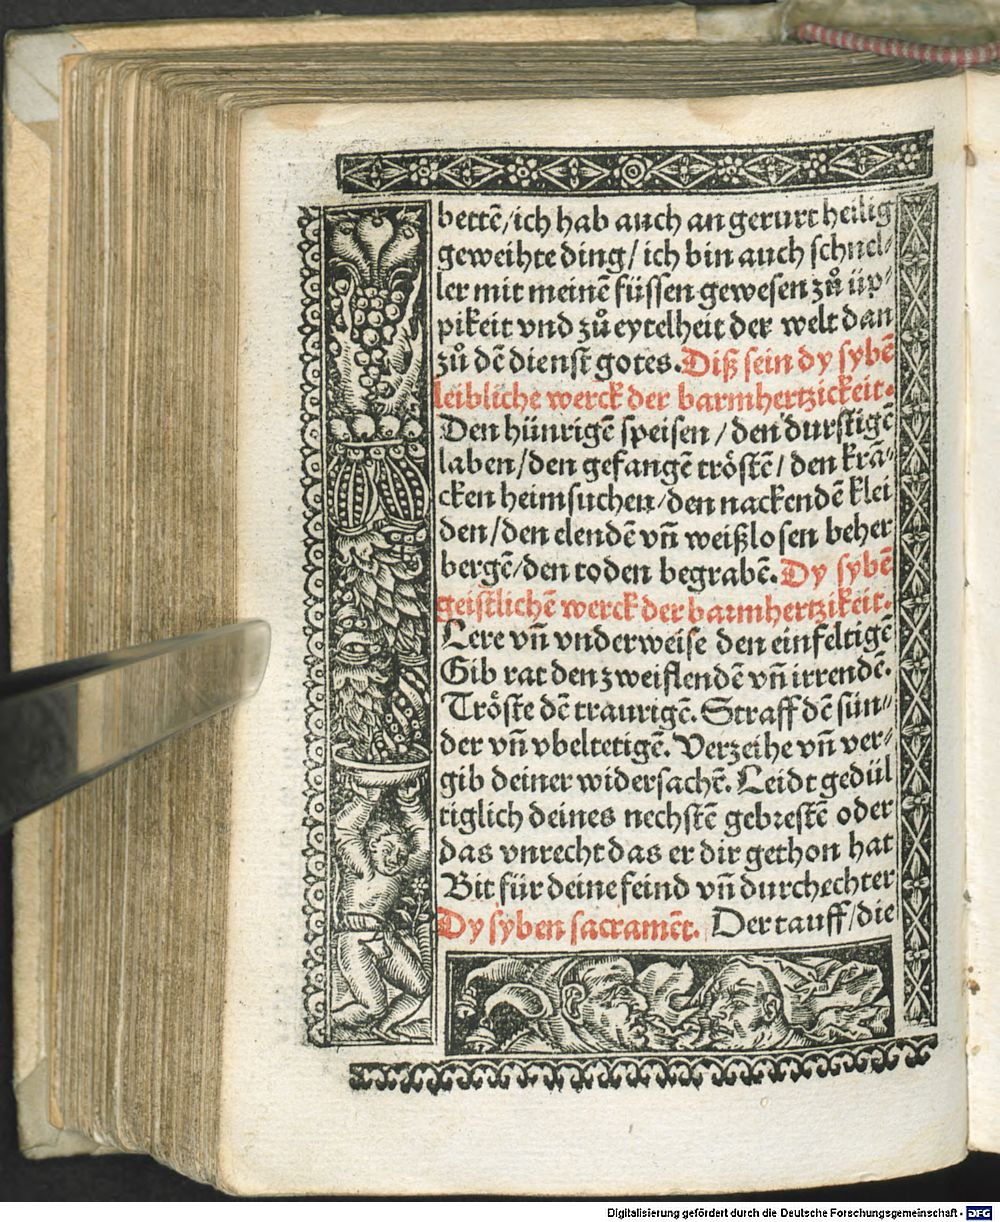 bettē/ich hab auch an gerurt heilig
geweihte ding/ich bin auch schnel⸗
ler mit meinē füssen gewesen zů üp⸗
pikeit vnd zů eytelheit der welt dan
zů dē dienst gotes. Diß sein dy sybē
leibliche werck der barmhertzickeit.
Den hünrigē speisen/den durstigē
laben/den gefangē tröstē/den krā⸗
cken heimsuchen/den nackendē klei
den/den elendē vñ weißlosen beher
bergē/den toden begrabē. Dy sybē
geistlichē werck der barmhertzikeit.
Lere vñ vnderweise den einfeltigē
Gib rat den zweiflendē vñ irrendē.
Tröste dē traurigē. Straff dē sün⸗
der vñ vbeltetigē. Verzeihe vñ ver⸗
gib deiner widersachē. Leidt gedül
tiglich deines nechstē gebrestē oder
das vnrecht das er dir gethon hat
Bit für deine feind vñ durchechter
Dy syben sacramēt. Der tauff/die
Digitalisierung gefördert durch die Deutsche Forschungsgemeinschaft - DFG